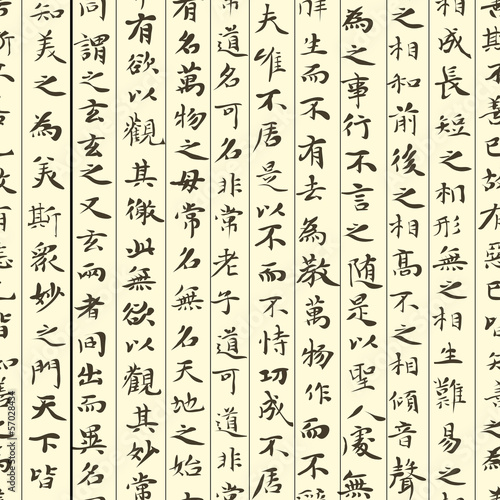 不善已故有惡已皆知善之為
相成長短之相形無之相生難易之
之相和前後之相高不之相傾音聲
為之事行不言之随是以聖人處無
生而不有去為教萬物作而不
夫唯不居是以不而不恃功成不居
常道名可名非常老子道可道非常
有名萬物之母常名無名天地之始
有欲以觀其徼此無欲以觀其妙常
同謂之玄玄之又玄兩者同出而異名
知美之為美斯眾妙之門天下皆